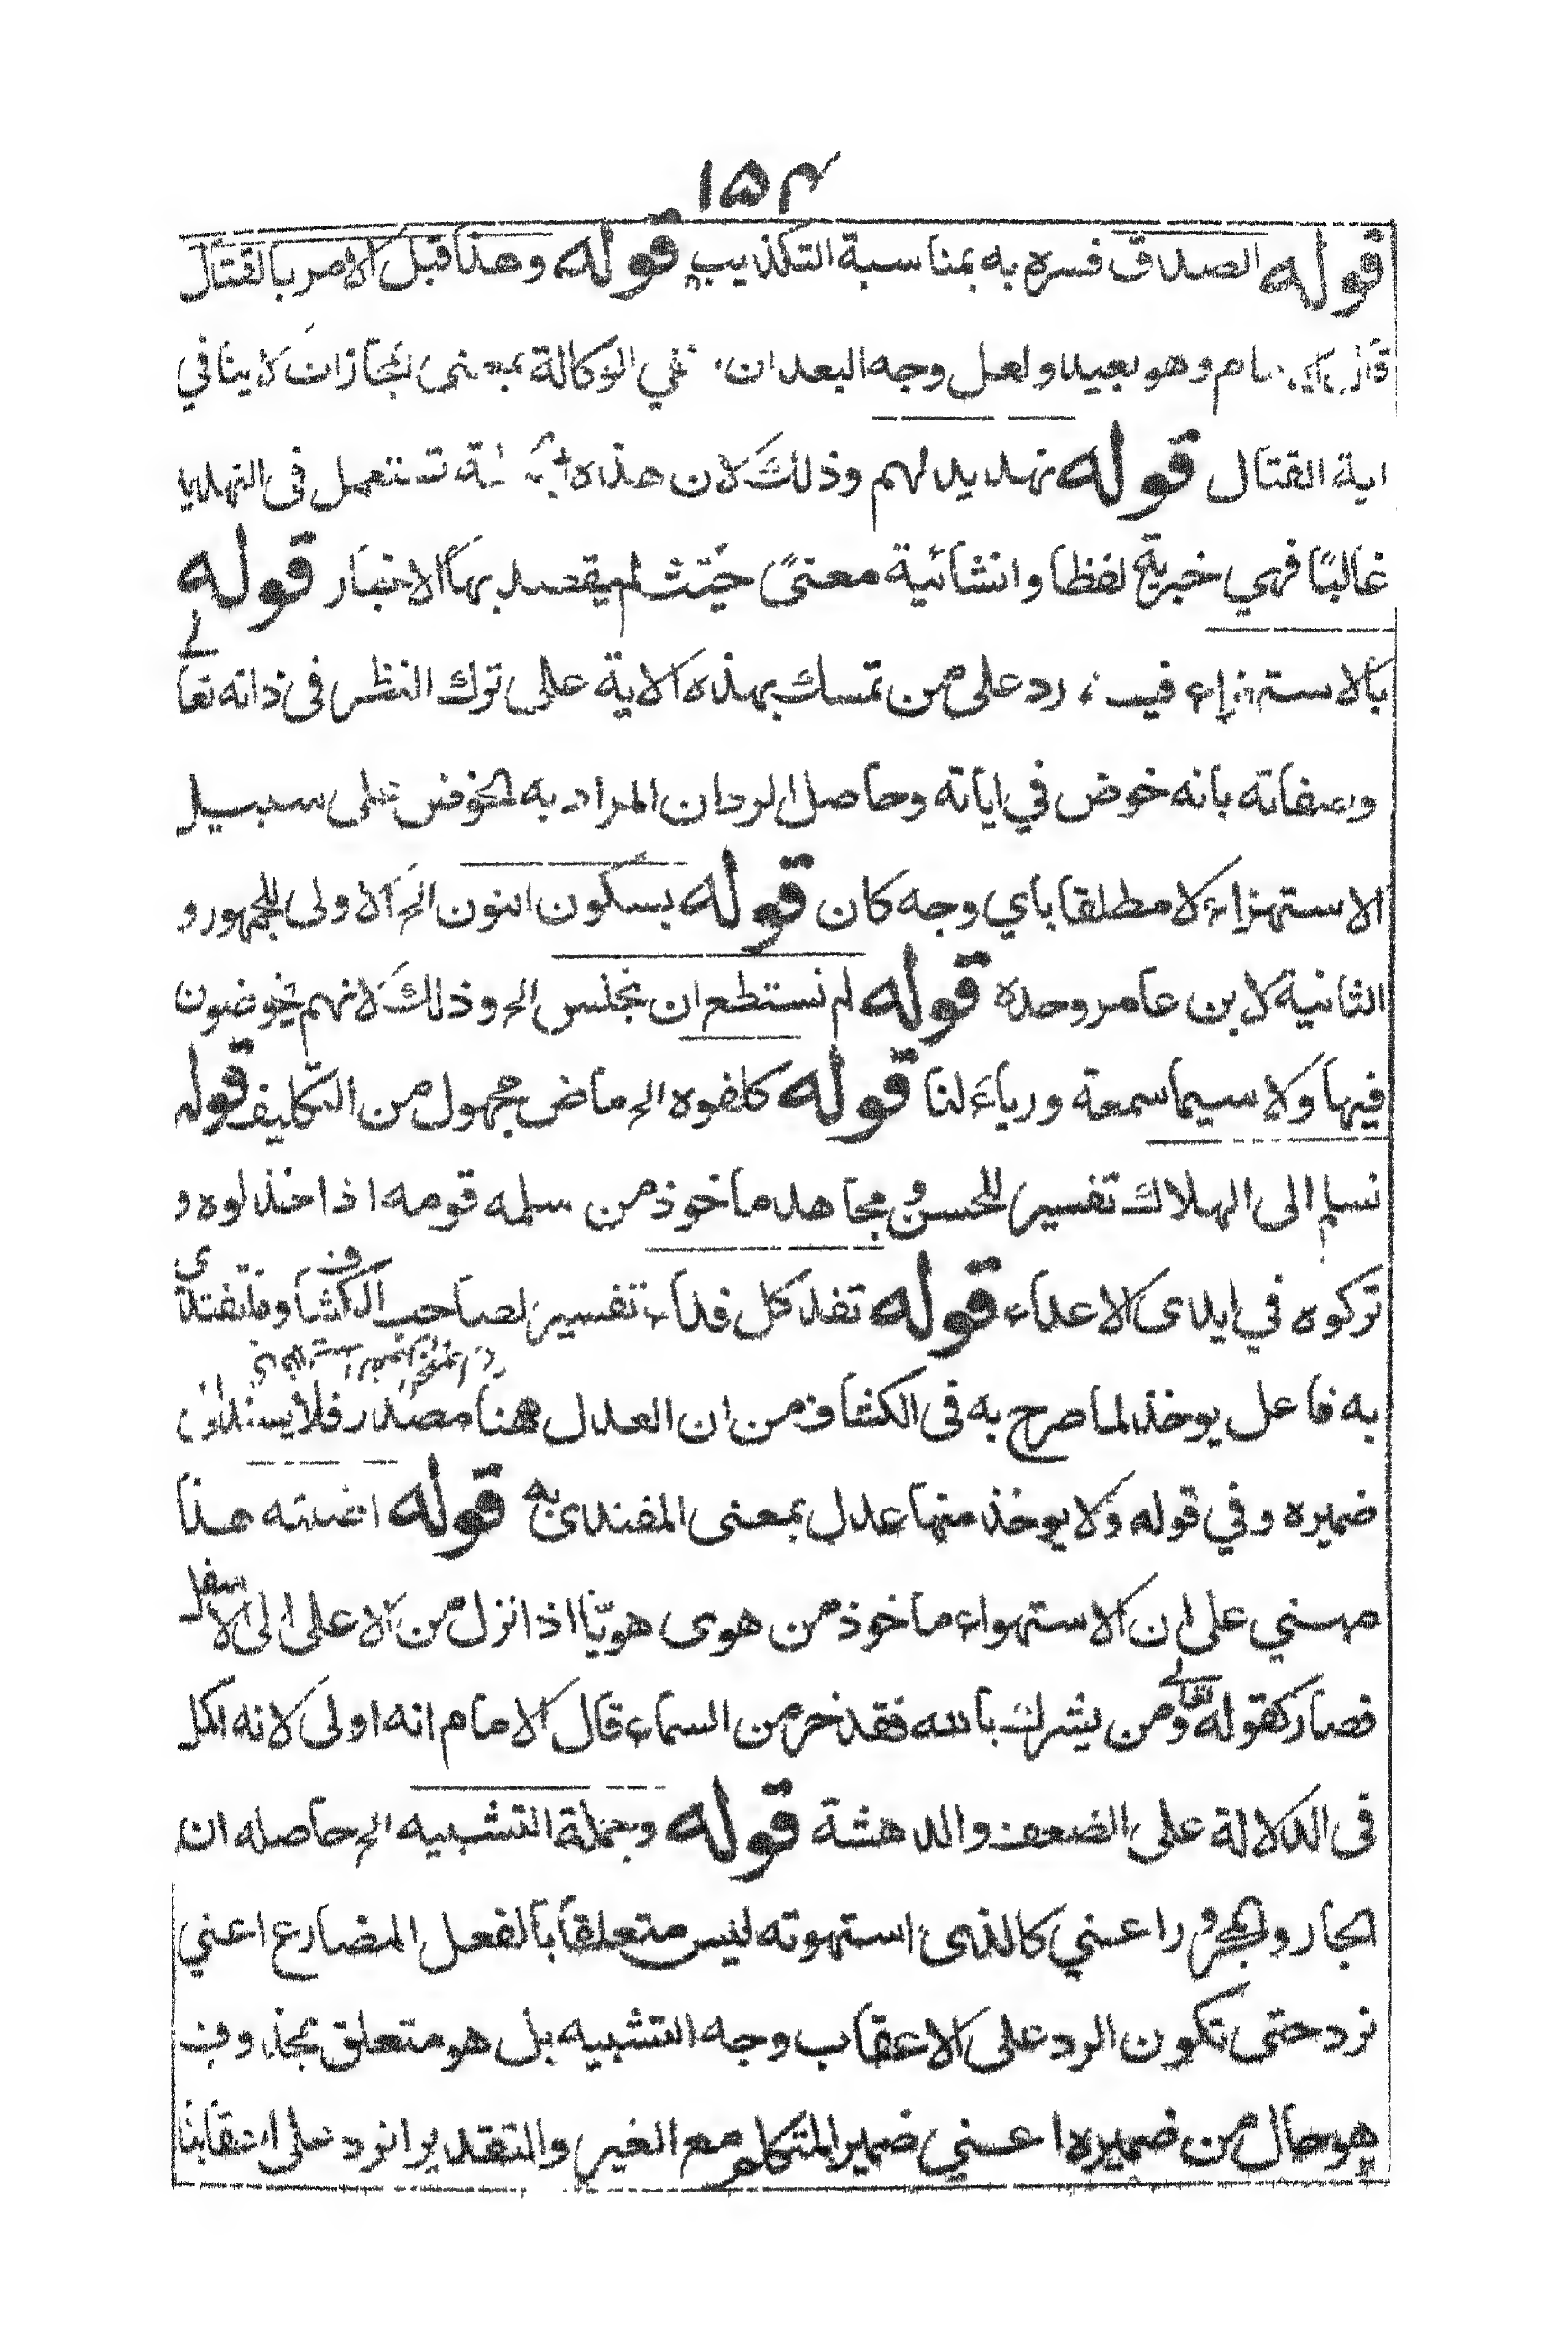 ۱۵۴
قوله الصدق فسره به بمناسبة التكذيب قوله وهذا قبل الامر بالقتال
قال الامام وهو بعيد ولعل وجه البعد ان نفي الوكالة بمعنى المجازات لا ينافي
اية القتال قوله تهديد لهم وذلك لان هذه تستعمل في التهديد
غالبًا فهي خبرية لفظا وانشائية معنىً حيث لم يقصد بها الاخبار قوله
بالاستهزاء فيه رد على من تمسك بهذه الاية على ترك النظر في ذاته تعالى
وصفاته بانه خوض في اياته وحاصل الرد ان المراد به الخوض على سبيل
الاستهزاء لا مطلقا باي وجه كان قوله بسكون النون الخ الاولى للجمهور و
الثانية لابن عامر وحده قوله لم نستطع ان نجلس الخ وذلك لانهم يخوضون
فيها ولا سيما سمعة ورياءً لنا قوله كلفوه الخ ماض مجهول من التكليف قوله
تسلم الى الهلاك تفسير للحسن ومجاهد ماخوذ من سلمه قومه اذا خذلوه و
تركوه في ايدي الاعداء قوله تفد كل فداء تفسير لصاحب الكشاف وما تفتدي
به فاعل يوخذ لما صرح به في الكشاف من ان العدل ههنا مصدر فلا يسند الى
ضميره وفي قوله ولا يوخذ منها عدل بمعنى المفتدى به قوله اضلته هذا
مبني على ان الاستهواء ماخوذ من هوى هويّا اذا نزل من الاعلى الى الاسفل
فصار كقوله تعالى ومن يشرك بالله فقد خر من السماء قال الامام انه اولى لانه اكمل
في الدلالة على الضعف والدهشة قوله وجملة التشبيه الخ حاصله ان
الجار والمجرور اعني كالذي استهوته ليس متعلقا بالفعل المضارع اعني
نرد حتى تكون الرد على الاعقاب وجه التشبيه بل هو متعلق بمحذوف
هو حال من ضميره اعني ضمير المتكلم مع الغير والتقدير انرد على اعقابنا